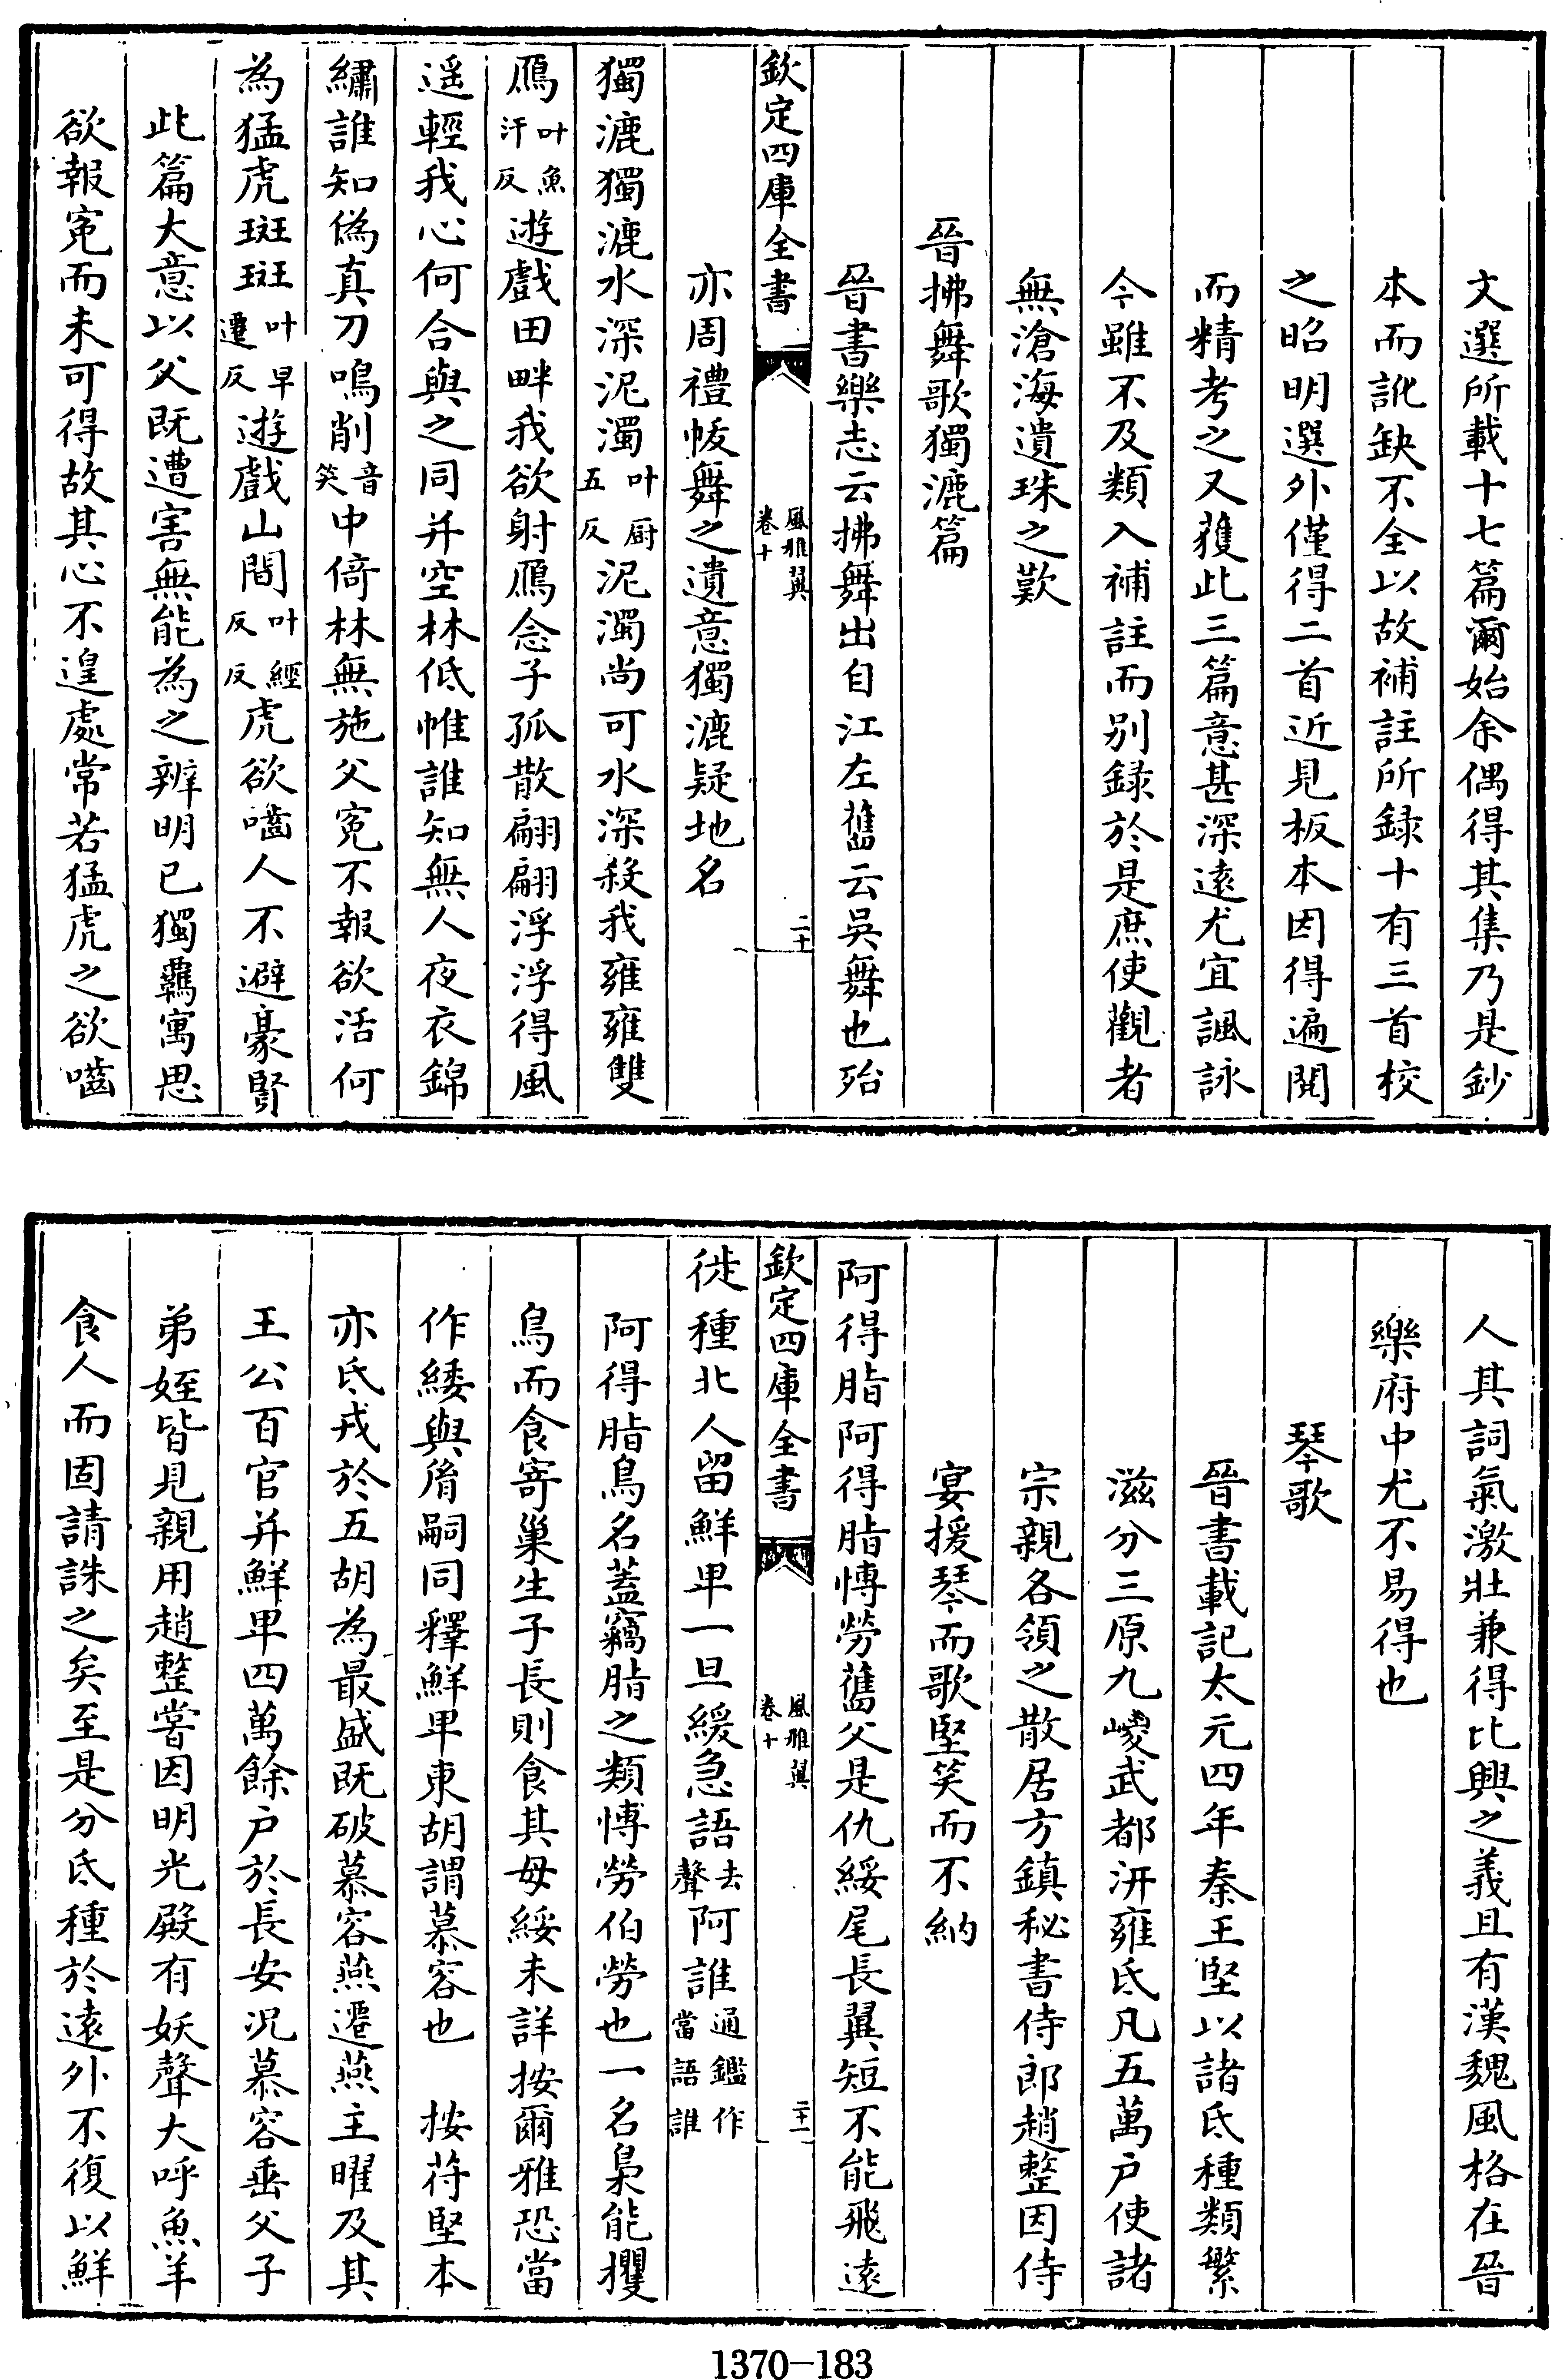 文選所載十七篇爾始余偶得其集乃是鈔
本而訛缺不全以故補註所録十有三首校
之昭明選外僅得二首近見板本因得遍閲
而精考之又獲此三篇意甚深逺尤宜諷詠
今雖不及類入補註而别録於是庶使觀者
無滄海遺珠之歎
晉拂舞歌獨漉篇
晉書樂志云拂舞出自江左舊云吳舞也殆
欽定四庫全書
風雅翼
卷十
二十
亦周禮帗舞之遺意獨漉疑地名
獨漉獨漉水深泥濁叶厨五反泥濁尚可水深殺我雍雍雙
鴈叶魚汗反遊戲田畔我欲射鴈念子孤散翩翩浮浮得風
遥輕我心何合與之同并空林低帷誰知無人夜衣錦
繡誰知偽真刀鳴削音笑中倚林無施父寃不報欲活何
為猛虎斑斑叶早遷反遊戲山間叶經反反虎欲嚙人不避豪賢
此篇大意以父既遭害無能為之辨明已獨羈寓思
欲報寃而未可得故其心不遑處常若猛虎之欲嚙
人其詞氣激壯兼得比興之義且有漢魏風格在晉
樂府中尤不易得也
琴歌
晉書載記太元四年秦王堅以諸氐種類繁
滋分三原九嵕武都汧雍氐凡五萬户使諸
宗親各領之散居方鎮秘書侍郎趙整因侍
宴援琴而歌堅笑而不納
阿得脂阿得脂愽勞舊父是仇綏尾長翼短不能飛逺
欽定四庫全書
風雅翼
卷十
二十一
徙種北人留鮮卑一旦緩急語去聲阿誰通鑑作當語誰
阿得脂鳥名蓋竊脂之類愽勞伯勞也一名梟能攫
鳥而食寄巢生子長則食其母綏未詳按爾雅恐當
作緌與㣧嗣同釋鮮卑東胡謂慕容也　按苻堅本
亦氐戎於五胡為最盛既破慕容燕遷燕主曜及其
王公百官并鮮卑四萬餘户於長安况慕容垂父子
弟姪皆見親用趙整嘗因明光殿有妖聲大呼魚羊
食人而固請誅之矣至是分氐種於逺外不復以鮮
1370—183